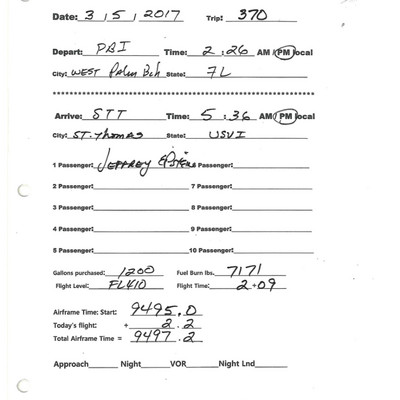 Date: 3 / 5 / 2017 Trip: 370
Depart: PBI Time: 2 : 26 AM / PM local
City: WEST Palm Bch State: FL
Arrive: STT Time: 5 : 36 AM / PM local
City: ST. Thomas State: USVI
1 Passenger: Jeffrey Epstein 6 Passenger:
2 Passenger: 7 Passenger:
3 Passenger: 8 Passenger:
4 Passenger: 9 Passenger:
5 Passenger: 10 Passenger:
Gallons purchased: 1200 Fuel Burn lbs. 7171
Flight Level: FL410 Flight Time: 2+09
Airframe Time: Start: 9495.0
Today's flight: + 2.2
Total Airframe Time = 9497.2
Approach Night VOR Night Lnd